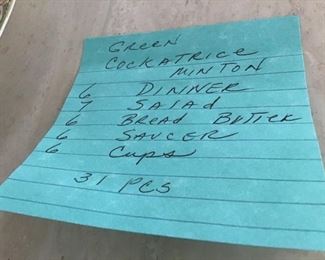 Green
Cockatrice
Minton
6 Dinner
7 Salad
6 Bread Butter
6 Saucer
6 Cups
31 pcs